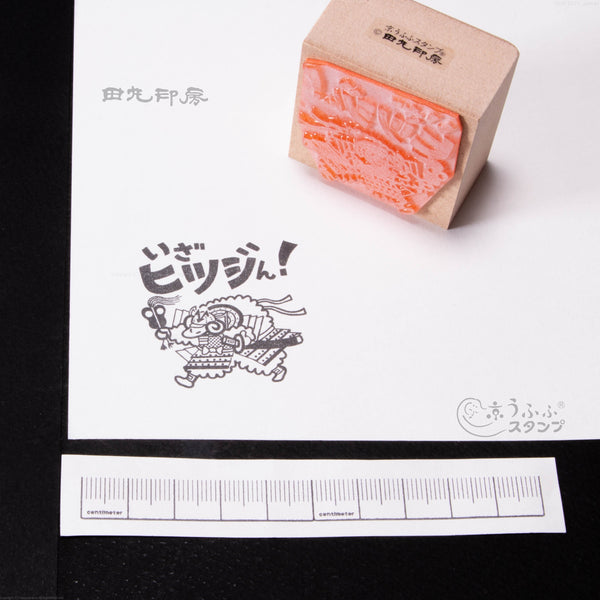 京うふふスタンプ®
©田丸印房
田丸印房
いざ
ヒツジん!
京うふふ®
スタンプ
centimeter centimeter